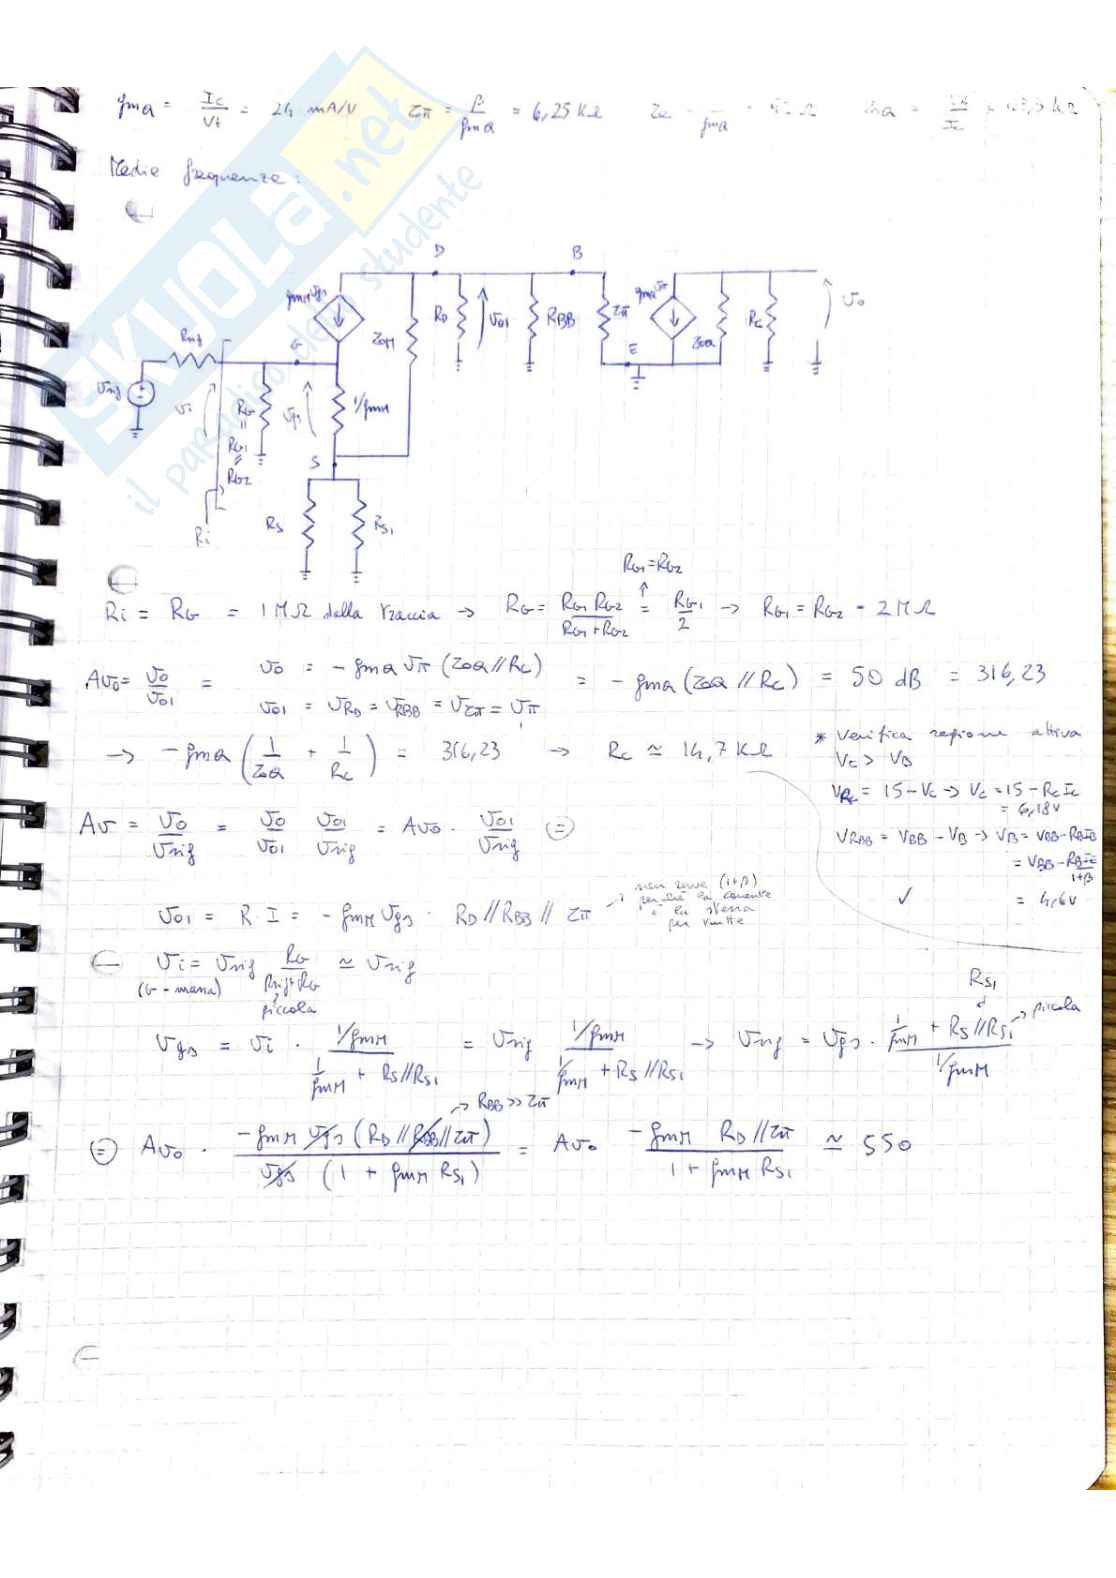 gmQ = Ic/Vt = 24 mA/V   rπ = β/gmQ = 6,25 KΩ
Medie frequenze:
D   B
gmM vgs   RD   vo1   RBB   rπ   gmQ vπ   roQ   RC   vo
Rsig   G   roM   E
vsig   vi   RG   vgs   1/gmM
=
RG1
//
RG2
S
Ri   RS   RS1
RG1=RG2
Ri = RG = 1 MΩ dalla traccia → RG = RG1 RG2/(RG1+RG2) = RG1/2 → RG1 = RG2 = 2 MΩ
Avo = vo/vo1 =   vo = - gmQ vπ (roQ // RC)   = - gmQ (roQ // RC) = 50 dB = 316,23
vo1 = vRD = vRBB = vrπ = vπ
→ - gmQ (1/roQ + 1/RC) = 316,23 → RC ≃ 14,7 KΩ
* Verifica regione attiva
VC > VB
VRC = 15 - VC → VC = 15 - RC IC
= 6,18V
VRBB = VBB - VB → VB = VBB - RB IB
= VBB - RB IE/(1+β)
✓   = 4,6V
Av = vo/vsig = vo/vo1 vo1/vsig = Avo · vo1/vsig (=)
vo1 = R · I = - gmM vgs · RD // RBB // rπ → non serve (1+β)
perché la corrente
è la stessa
per tutte
vi = vsig RG/(Rsig+RG) ≃ vsig
(G - massa)   piccola
RS1
vgs = vi · (1/gmM)/(1/gmM + RS//RS1) = vsig (1/gmM)/(1/gmM + RS//RS1) → vsig = vgs · (1/gmM + RS//RS1)/(1/gmM) → piccola
→ RBB >> rπ
(=) Avo · - gmM vgs (RD // RBB // rπ)/(vgs (1 + gmM RS1)) = Avo - gmM RD // rπ/(1 + gmM RS1) ≃ 550
SKUOLA.net
il paradiso dello studente